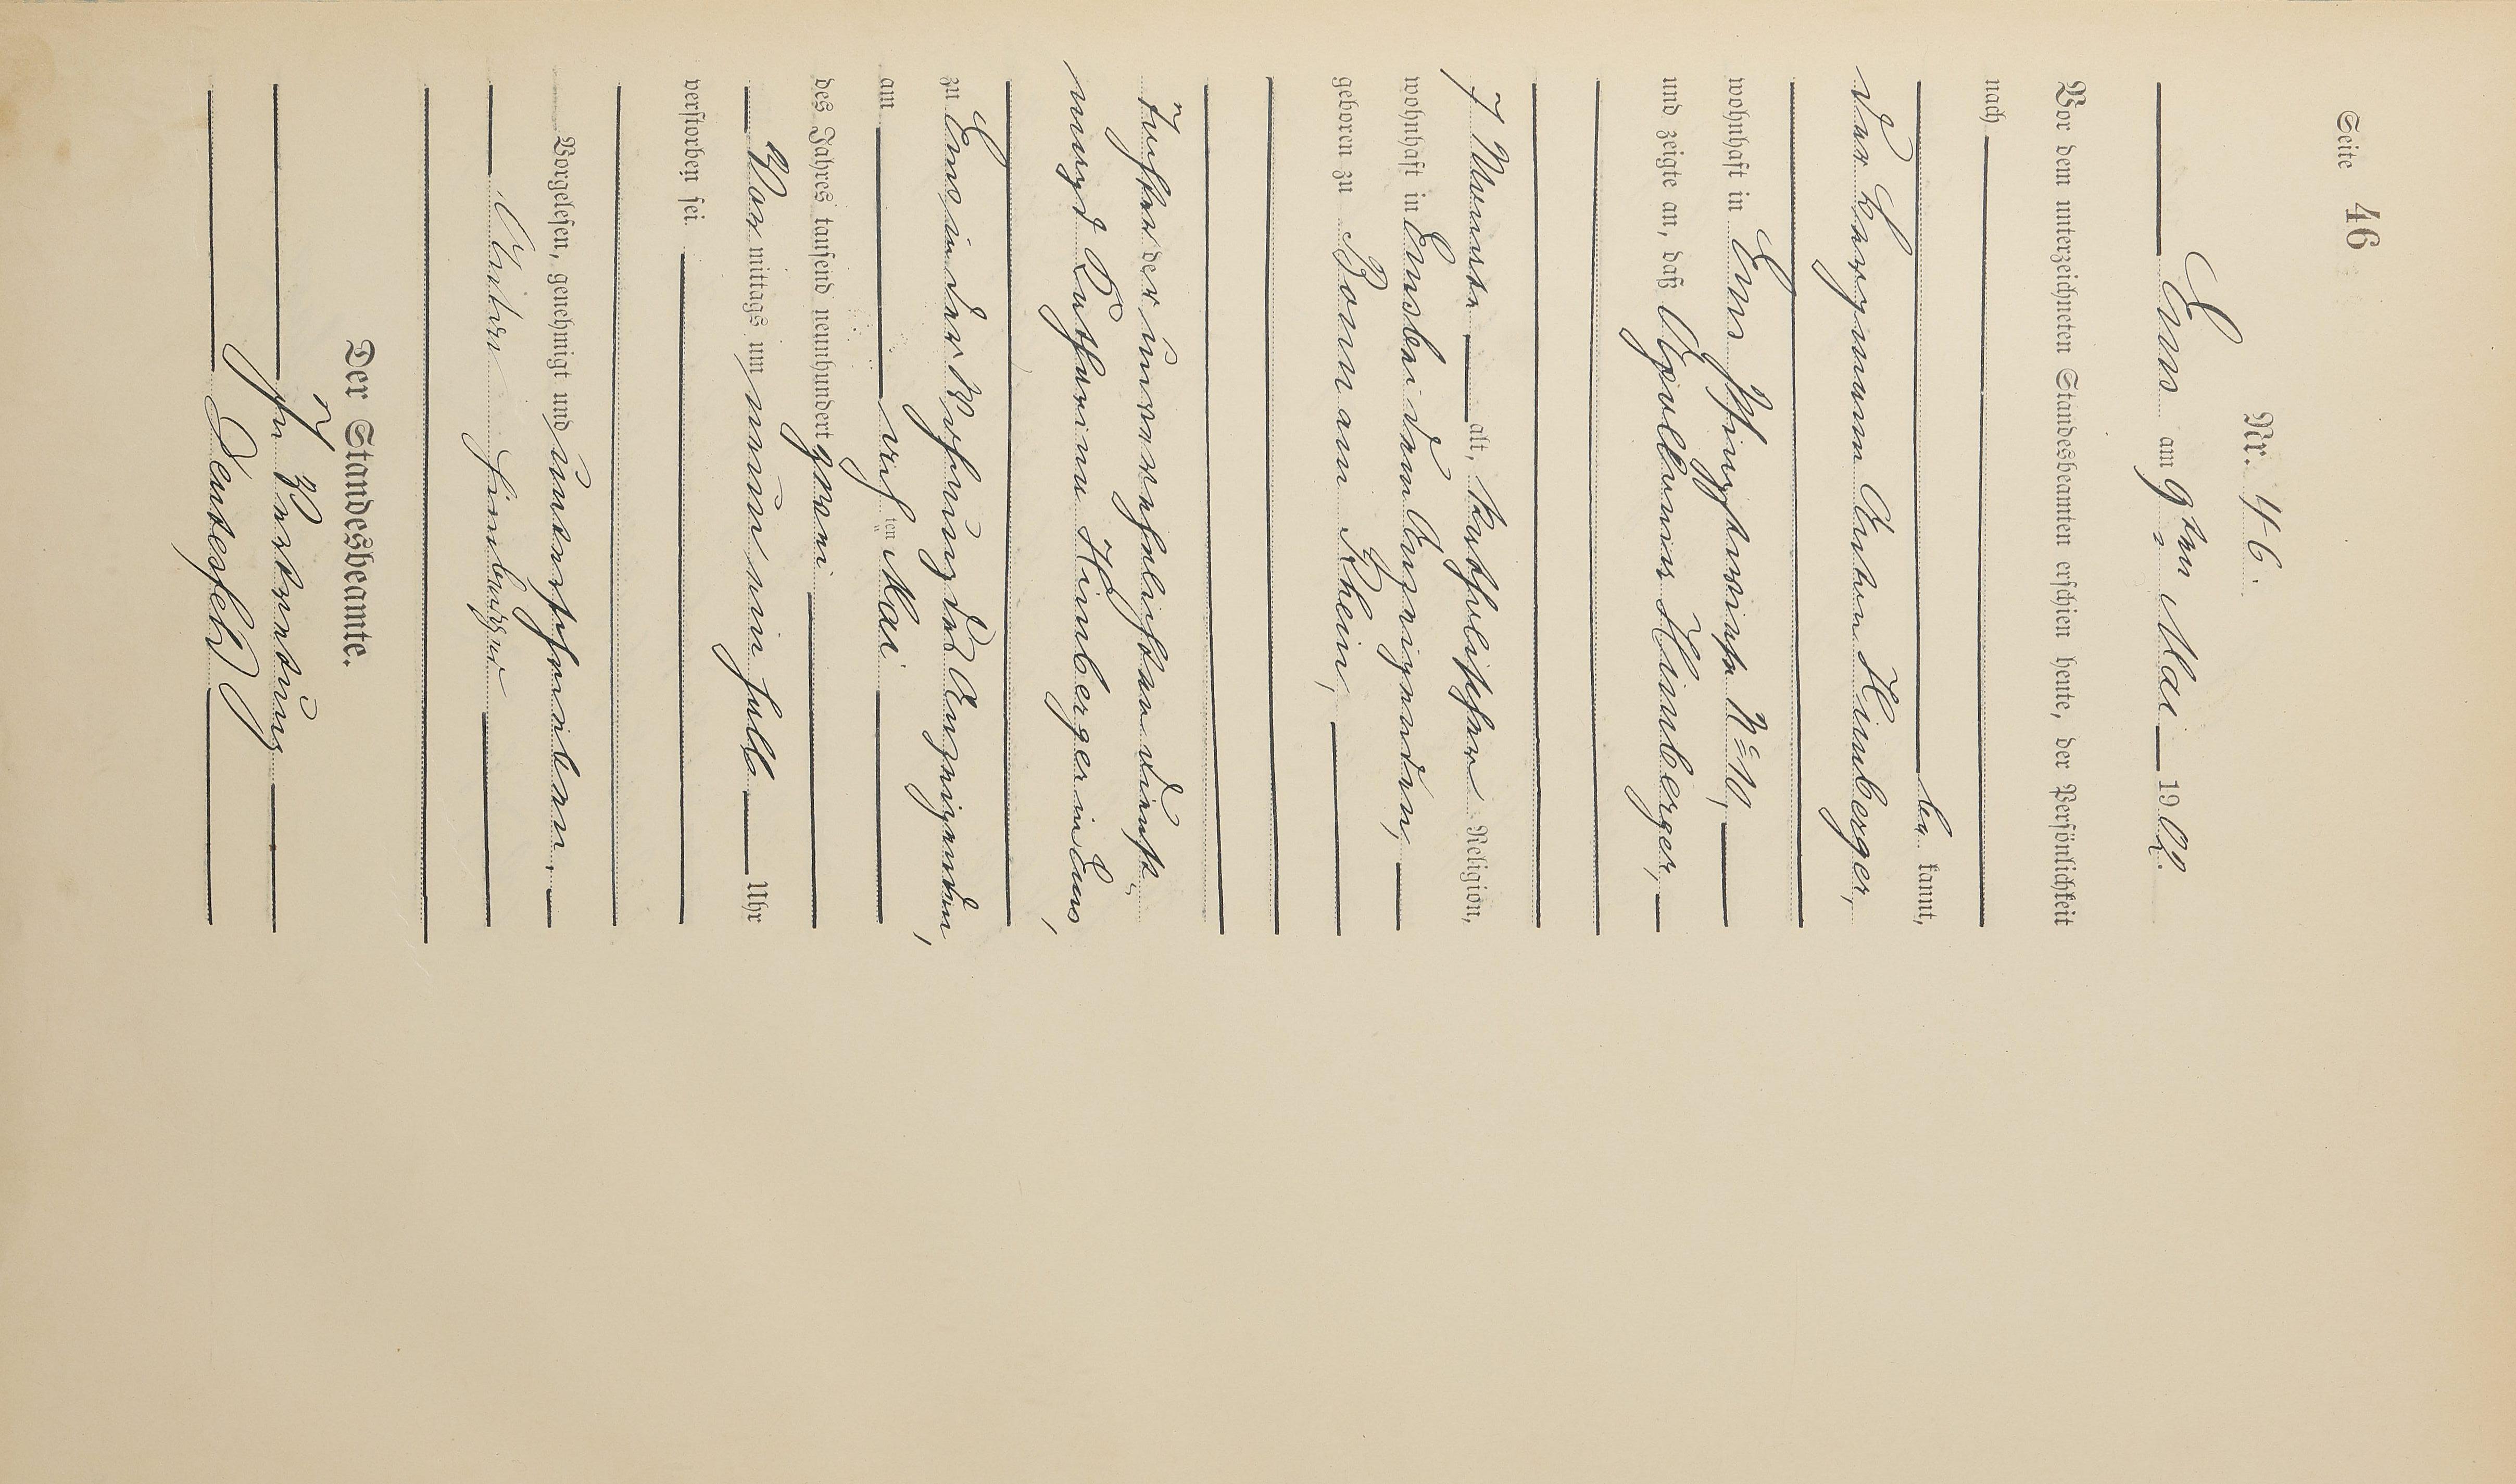 Seite 46
Nr. 46.
Ems am 9ten Mai 1902.
Vor dem unterzeichneten Standesbeamten erschien heute, der Persönlichkeit
nach
be kannt,
der Bergmann Anton Himberger,
wohnhaft in Ems Pfingstwiese No 10,
und zeigte an, daß Apollonia Himberger,
7 Monate alt, katholischer Religion,
wohnhaft in Ems bei dem Anzeigenden,
geboren zu Bonn am Rhein,
Tochter der unverehelichten Dienst-
magd Katharina Himberger in Ems,
zu Ems in der Wohnung des Anzeigenden,
am acht ten Mai
des Jahres tausend neunhundert zwei
Vor mittags um neun ein halb Uhr
verstorben sei.
Vorgelesen, genehmigt und unterschrieben.
Anton Himberger
Der Standesbeamte.
In Vertretung